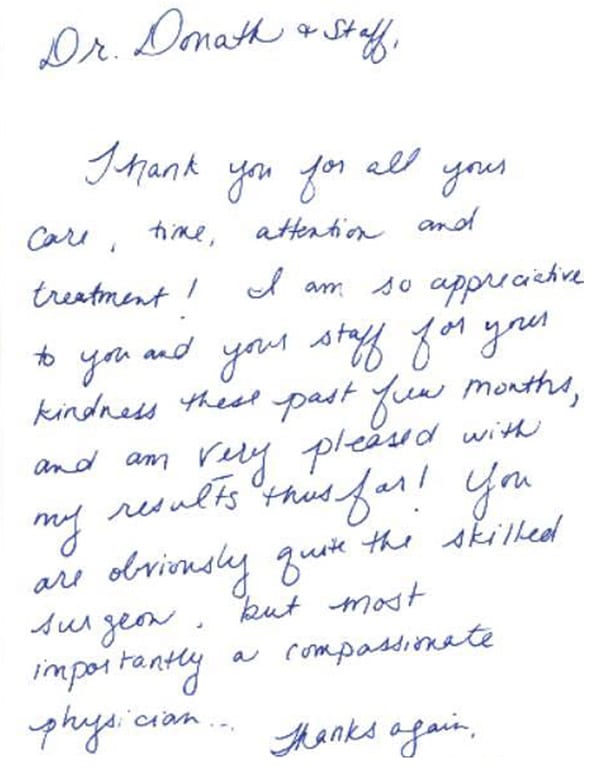 Dr. Donath & Staff,
Thank you for all your
care, time, attention and
treatment! I am so appreciative
to you and your staff for your
kindness these past few months,
and am very pleased with
my results thus far! You
are obviously quite the skilled
surgeon, but most
importantly a compassionate
physician...
Thanks again,